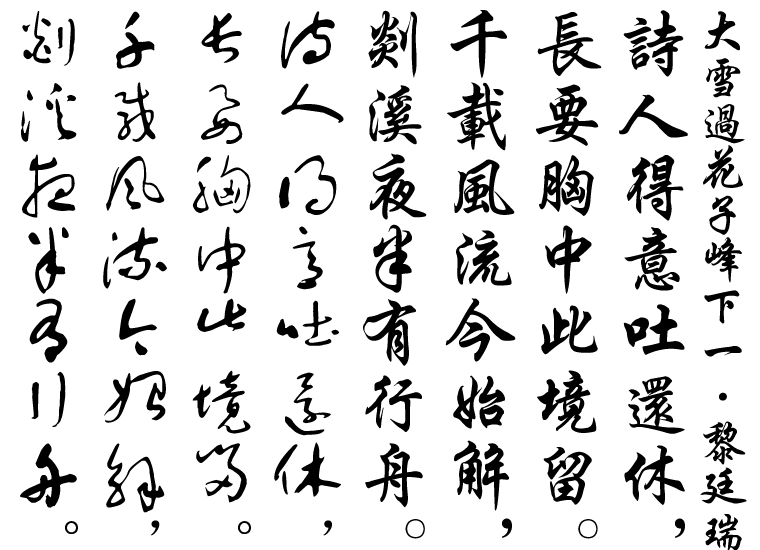 大雪過花子峰下一·黎廷瑞
詩人得意吐還休，
長要胸中此境留。
千載風流今始解，
剡溪夜半有行舟。
诗人得意吐还休，
长要胸中此境留。
千载风流今始解，
剡溪夜半有行舟。